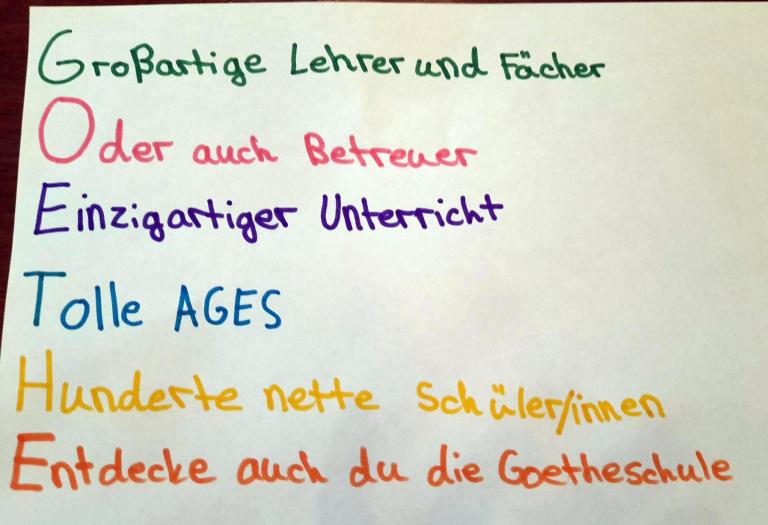 Großartige Lehrer und Fächer
Oder auch Betreuer
Einzigartiger Unterricht
Tolle AGES
Hunderte nette Schüler/innen
Entdecke auch du die Goetheschule